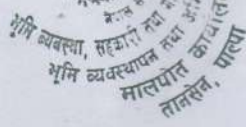 नेपाल
भूमि व्यवस्था, सहकारी तथा
भूमि व्यवस्थापन तथा
मालपोत कार्यालय
तानसेन, पाल्पा